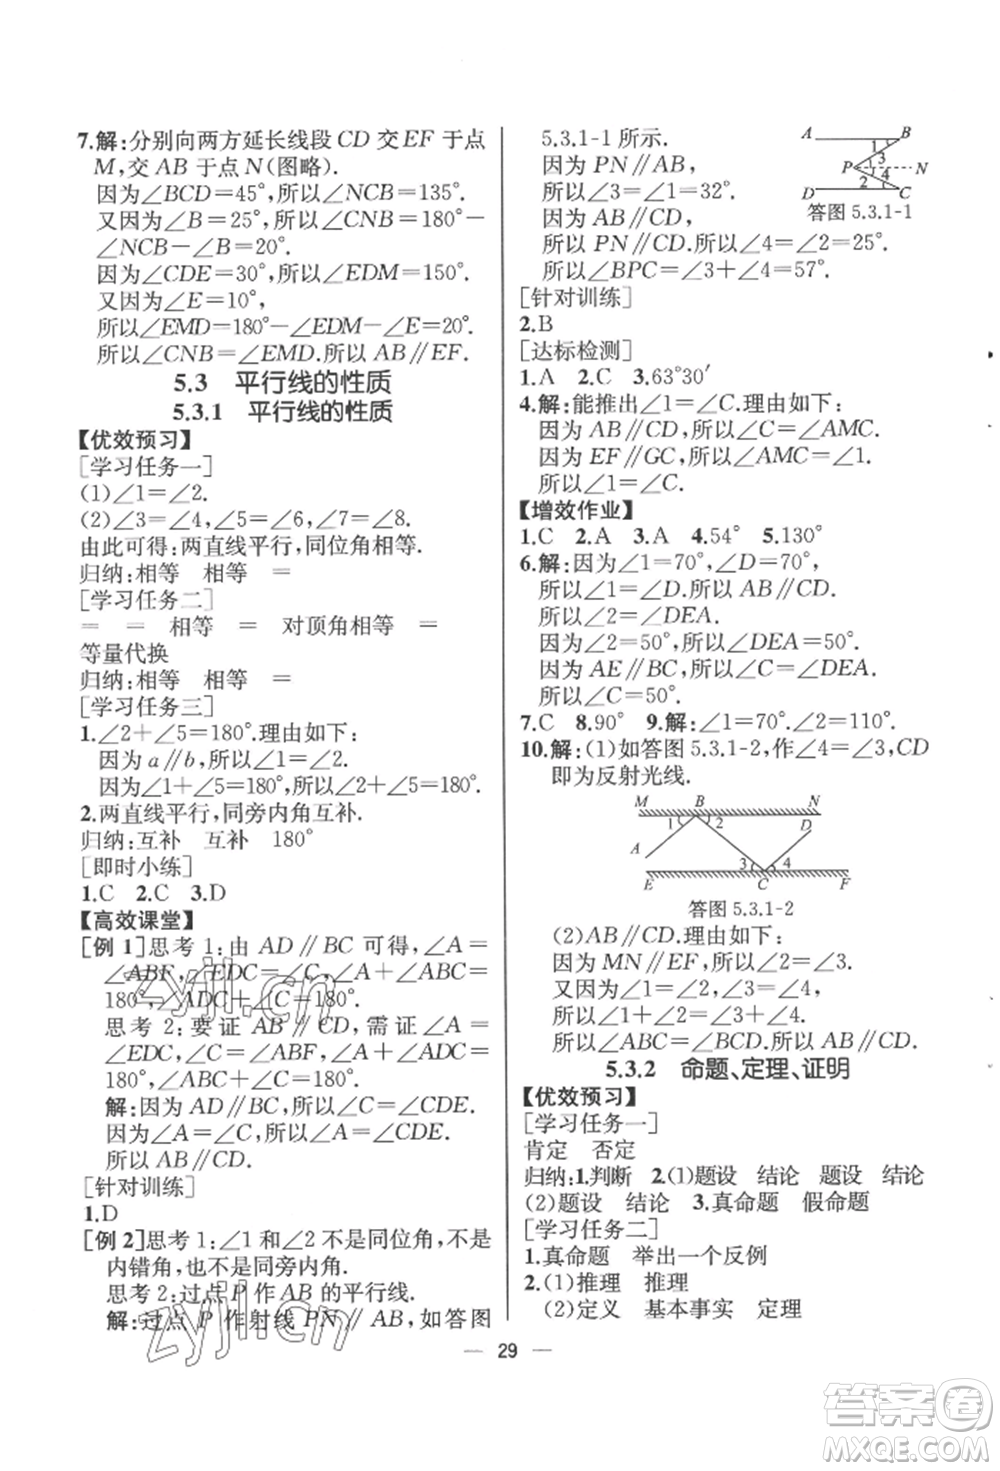 7.解:分别向两方延长线段CD交EF于点
M,交AB于点N(图略).
因为∠BCD=45°,所以∠NCB=135°.
又因为∠B=25°,所以∠CNB=180°−
∠NCB−∠B=20°.
因为∠CDE=30°,所以∠EDM=150°.
又因为∠E=10°,
所以∠EMD=180°−∠EDM−∠E=20°.
所以∠CNB=∠EMD.所以AB∥EF.
5.3 平行线的性质
5.3.1 平行线的性质
【优效预习】
[学习任务一]
(1)∠1=∠2.
(2)∠3=∠4,∠5=∠6,∠7=∠8.
由此可得:两直线平行,同位角相等.
归纳:相等 相等 =
[学习任务二]
= = 相等 = 对顶角相等 =
等量代换
归纳:相等 相等 =
[学习任务三]
1.∠2+∠5=180°.理由如下:
因为a∥b,所以∠1=∠2.
因为∠1+∠5=180°,所以∠2+∠5=180°.
2.两直线平行,同旁内角互补.
归纳:互补 互补 180°
[即时小练]
1.C 2.C 3.D
【高效课堂】
[例1]思考1:由AD∥BC可得,∠A=
∠ABF,∠EDC=∠C,∠A+∠ABC=
180°,∠ADC+∠C=180°.
思考2:要证AB∥CD,需证∠A=
∠EDC,∠C=∠ABF,∠A+∠ADC=
180°,∠ABC+∠C=180°.
解:因为AD∥BC,所以∠C=∠CDE.
因为∠A=∠C,所以∠A=∠CDE.
所以AB∥CD.
[针对训练]
1.D
[例2]思考1:∠1和∠2不是同位角,不是
内错角,也不是同旁内角.
思考2:过点P作AB的平行线.
解:过点P作射线PN∥AB,如答图
5.3.1-1所示.
因为PN∥AB,
所以∠3=∠1=32°.
因为AB∥CD,
所以PN∥CD.所以∠4=∠2=25°.
所以∠BPC=∠3+∠4=57°.
A B
1
P 3 N
4
2
D C
答图5.3.1-1
[针对训练]
2.B
[达标检测]
1.A 2.C 3.63°30′
4.解:能推出∠1=∠C.理由如下:
因为AB∥CD,所以∠C=∠AMC.
因为EF∥GC,所以∠1=∠AMC.
所以∠1=∠C.
【增效作业】
1.C 2.A 3.A 4.54° 5.130°
6.解:因为∠1=70°,∠D=70°,
所以∠1=∠D.所以AB∥CD.
所以∠2=∠DEA.
因为∠2=50°,所以∠DEA=50°.
因为AE∥BC,所以∠C=∠DEA.
所以∠C=50°.
7.C 8.90° 9.解:∠1=70°.∠2=110°.
10.解:(1)如答图5.3.1-2,作∠4=∠3,CD
即为反射光线.
M B N
1 2 D
A
3 4
E C F
答图5.3.1-2
(2)AB∥CD.理由如下:
因为MN∥EF,所以∠2=∠3.
又因为∠1=∠2,∠3=∠4,
所以∠1+∠2=∠3+∠4.
所以∠ABC=∠BCD.所以AB∥CD.
5.3.2 命题、定理、证明
【优效预习】
[学习任务一]
肯定 否定
归纳:1.判断 2.(1)题设 结论 题设 结论
(2)题设 结论 3.真命题 假命题
[学习任务二]
1.真命题 举出一个反例
2.(1)推理 推理
(2)定义 基本事实 定理
— 29 —
zyjl.cn
zyjl.cn
答案圈
MXQE.COM